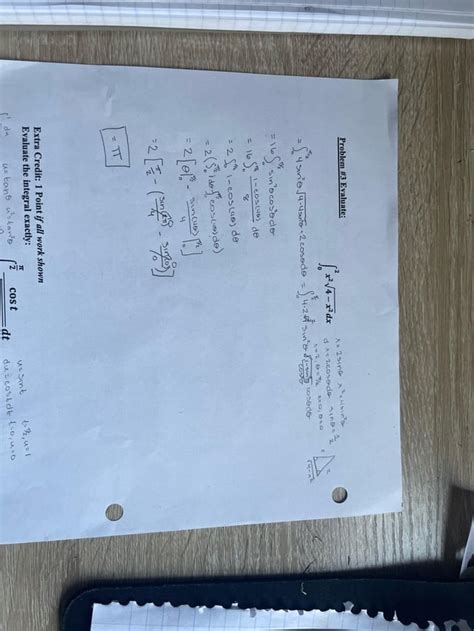 Problem #3 Evaluate:
∫₀² x²√4 − x² dx
x=2sinθ x²=4sin²θ
dx=2cosθdθ sinθ=x/2
x=2, θ=π/2 x=0, θ=0
=∫₀^{π/2} 4sin²θ √4-4sin²θ · 2cosθdθ = ∫₀^{π/2} 4·2·2 sin²θ cosθdθ
=16∫₀^{π/2} sin²θcos²θdθ
=16∫₀^{π/2} 1-cos(4θ)/8 dθ
=2∫₀^{π/2} 1-cos(4θ) dθ
=2(∫₀^{π/2} 1dθ - ∫₀^{π/2} cos(4θ)dθ)
=2[θ|₀^{π/2} - sin(4θ)/4 |₀^{π/2}]
=2[π/2 - (sin(2π)/4 - sin(0)/4)]
=π
Extra Credit: 1 Point if all work shown
Evaluate the integral exactly:
∫ π/2 cos t dt
u=sint t=π/2, u=1
du=costdt t=0, u=0